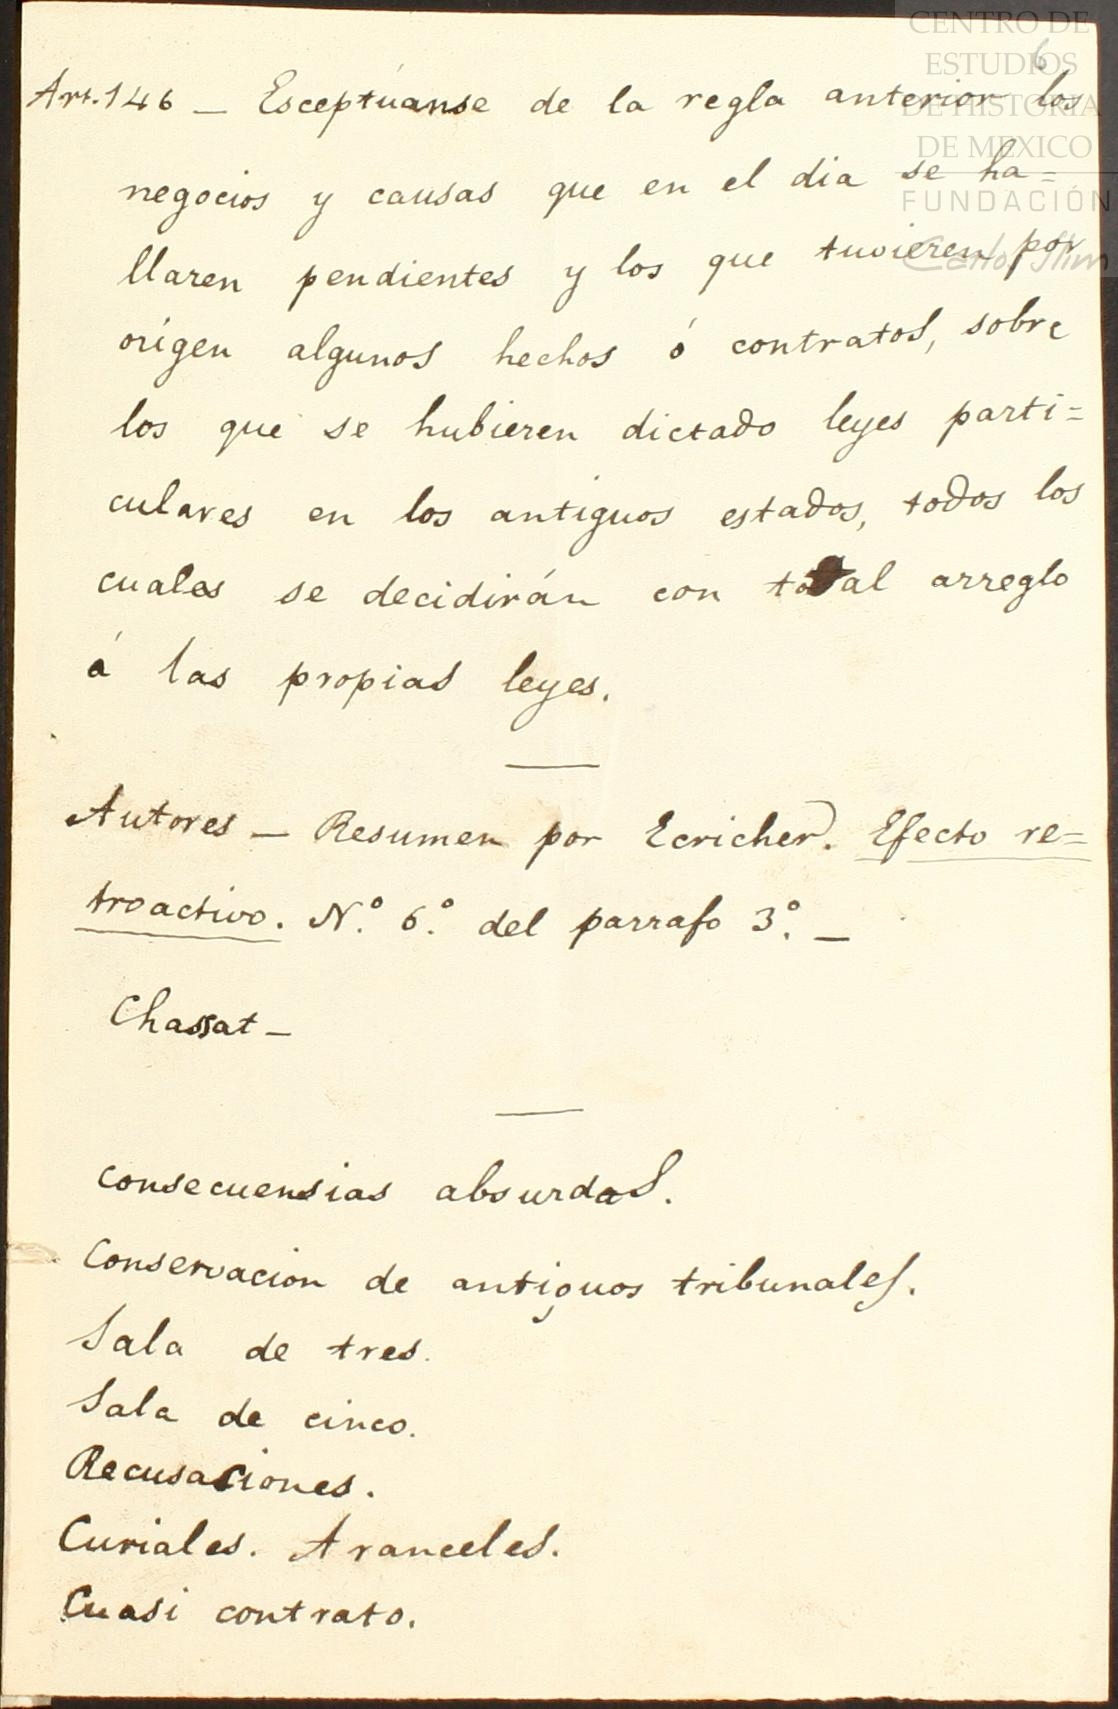 CENTRO DE
ESTUDIOS
DE HISTORIA
DE MEXICO
FUNDACIÓN
Carlos Slim
6
Art. 146 — Esceptúanse de la regla anterior los
negocios y causas que en el dia se ha=
llaren pendientes y los que tuvieren por
orígen algunos hechos ó contratos, sobre
los que se hubieren dictado leyes parti=
culares en los antiguos estados, todos los
cuales se decidirán con total arreglo
á las propias leyes.
Autores — Resumen por Ecricher). Efecto re=
troactivo. N.º 6.º del parrafo 3.º —
Chassat —
Consecuensias absurdas.
Conservacion de antiguos tribunales.
Sala de tres.
Sala de cinco.
Recusaciones.
Curiales. Aranceles.
Cuasi contrato.